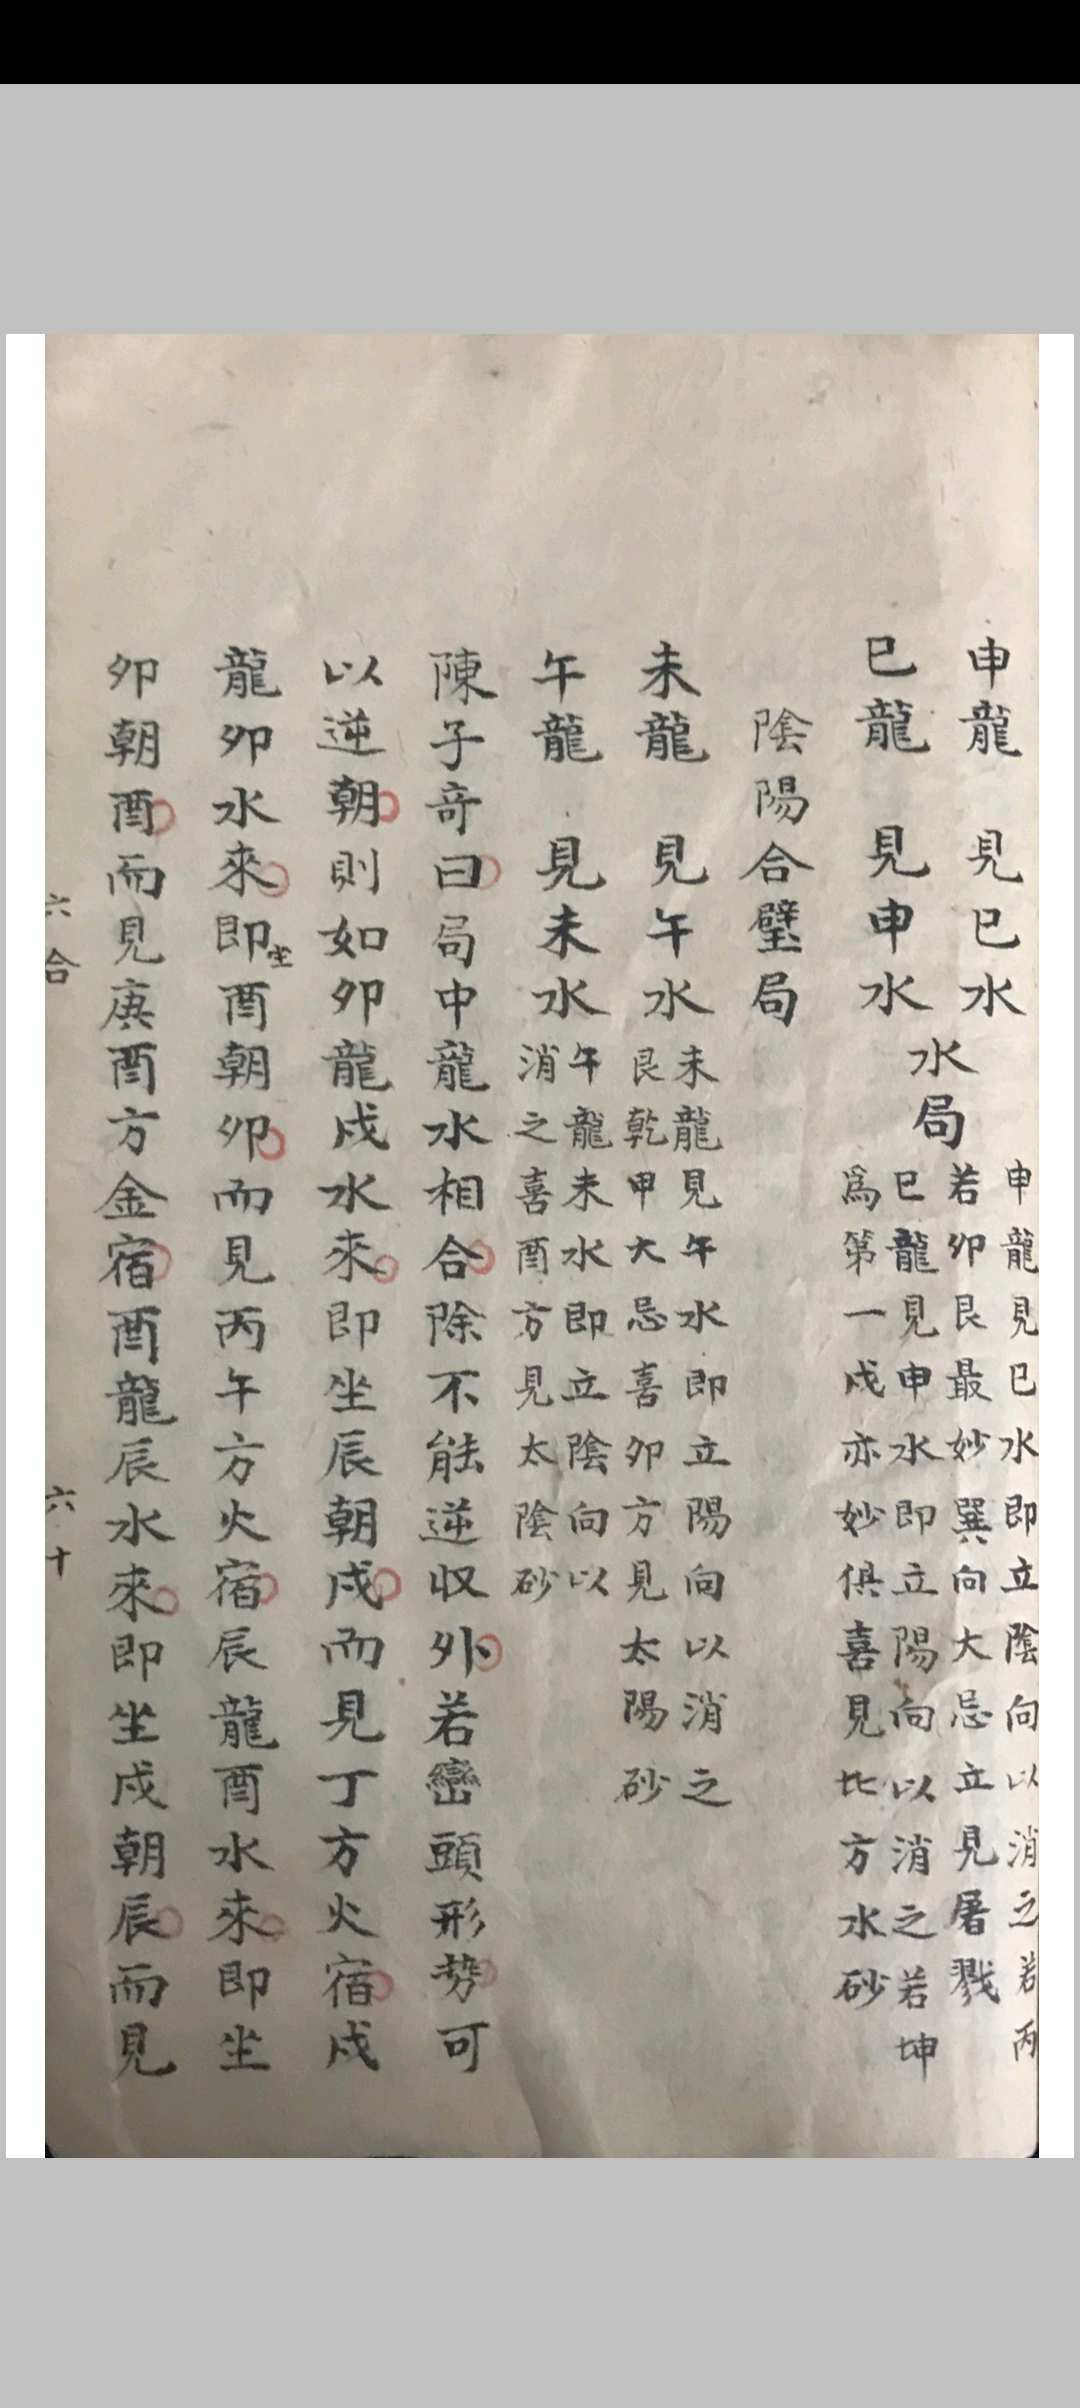 申龍　見巳水
巳龍　見申水
水局
申龍見巳水即立陰向以消之若丙
若卯艮最妙巽向大忌立見屠戮
巳龍見申水即立陽向以消之若坤
為第一戍亦妙俱喜見比方水砂
陰陽合璧局
未龍　見午水
未龍見午水即立陽向以消之
艮乾甲大忌喜卯方見太陽砂
午龍　見未水
午龍未水即立陰向以
消之喜酉方見太陰砂
陳子奇曰局中龍水相合除不能逆収外若巒頭形势可
以逆朝則如卯龍戍水來即坐辰朝戍而見丁方火宿戍
龍卯水來即坐酉朝卯而見丙午方火宿辰龍酉水來即坐
卯朝酉而見庚酉方金宿酉龍辰水來即坐戍朝辰而見
六合
六十